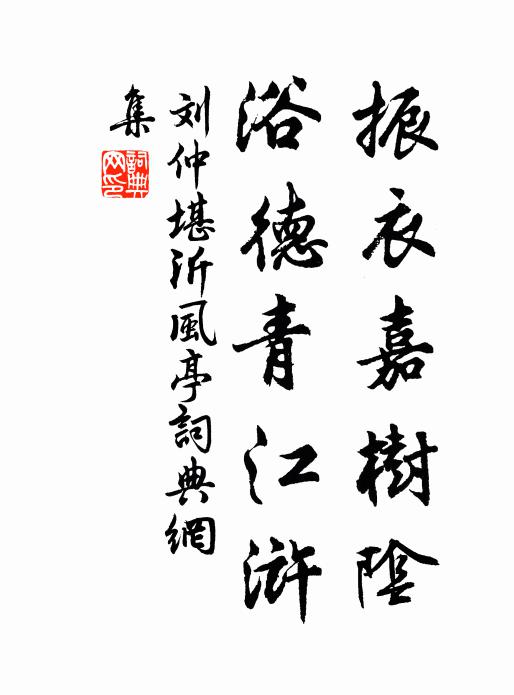 振衣嘉樹陰
浴德青江滸
刘仲堪沂風亭詞典網
集
詞典
网印